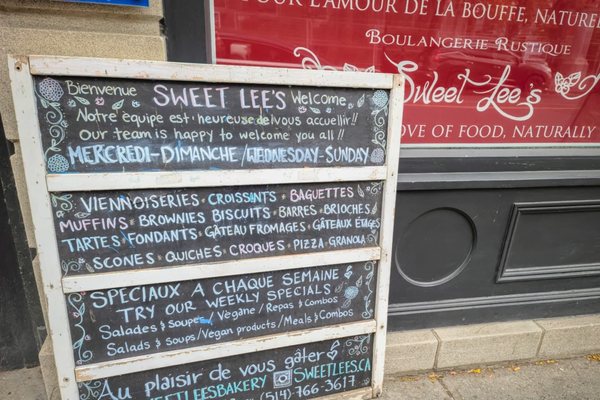 POUR L'AMOUR DE LA BOUFFE, NATUREL
BOULANGERIE RUSTIQUE
Sweet Lee's
OVE OF FOOD, NATURALLY
Bienvenue SWEET LEE'S Welcome
Notre équipe est heureuse de vous accueillir!!
Our team is happy to welcome you all!!
MERCREDI-DIMANCHE/WEDNESDAY-SUNDAY
VIENNOISERIES CROISSANTS BAGUETTES
MUFFINS BROWNIES BISCUITS BARRES BRIOCHES
TARTES FONDANTS GÂTEAU FROMAGES GÂTEAUX ÉTAGES
SCONES QUICHES CROQUES PIZZA GRANOLA
SPECIAUX A CHAQUE SEMAINE
TRY OUR WEEKLY SPECIALS
Salades & Soupes/Végane/Repas & Combos
Salads & Soups/Vegan products/Meals & Combos
Au plaisir de vous gâter
ETLEESBAKERY SWEETLEES.CA
(514) 766-3617